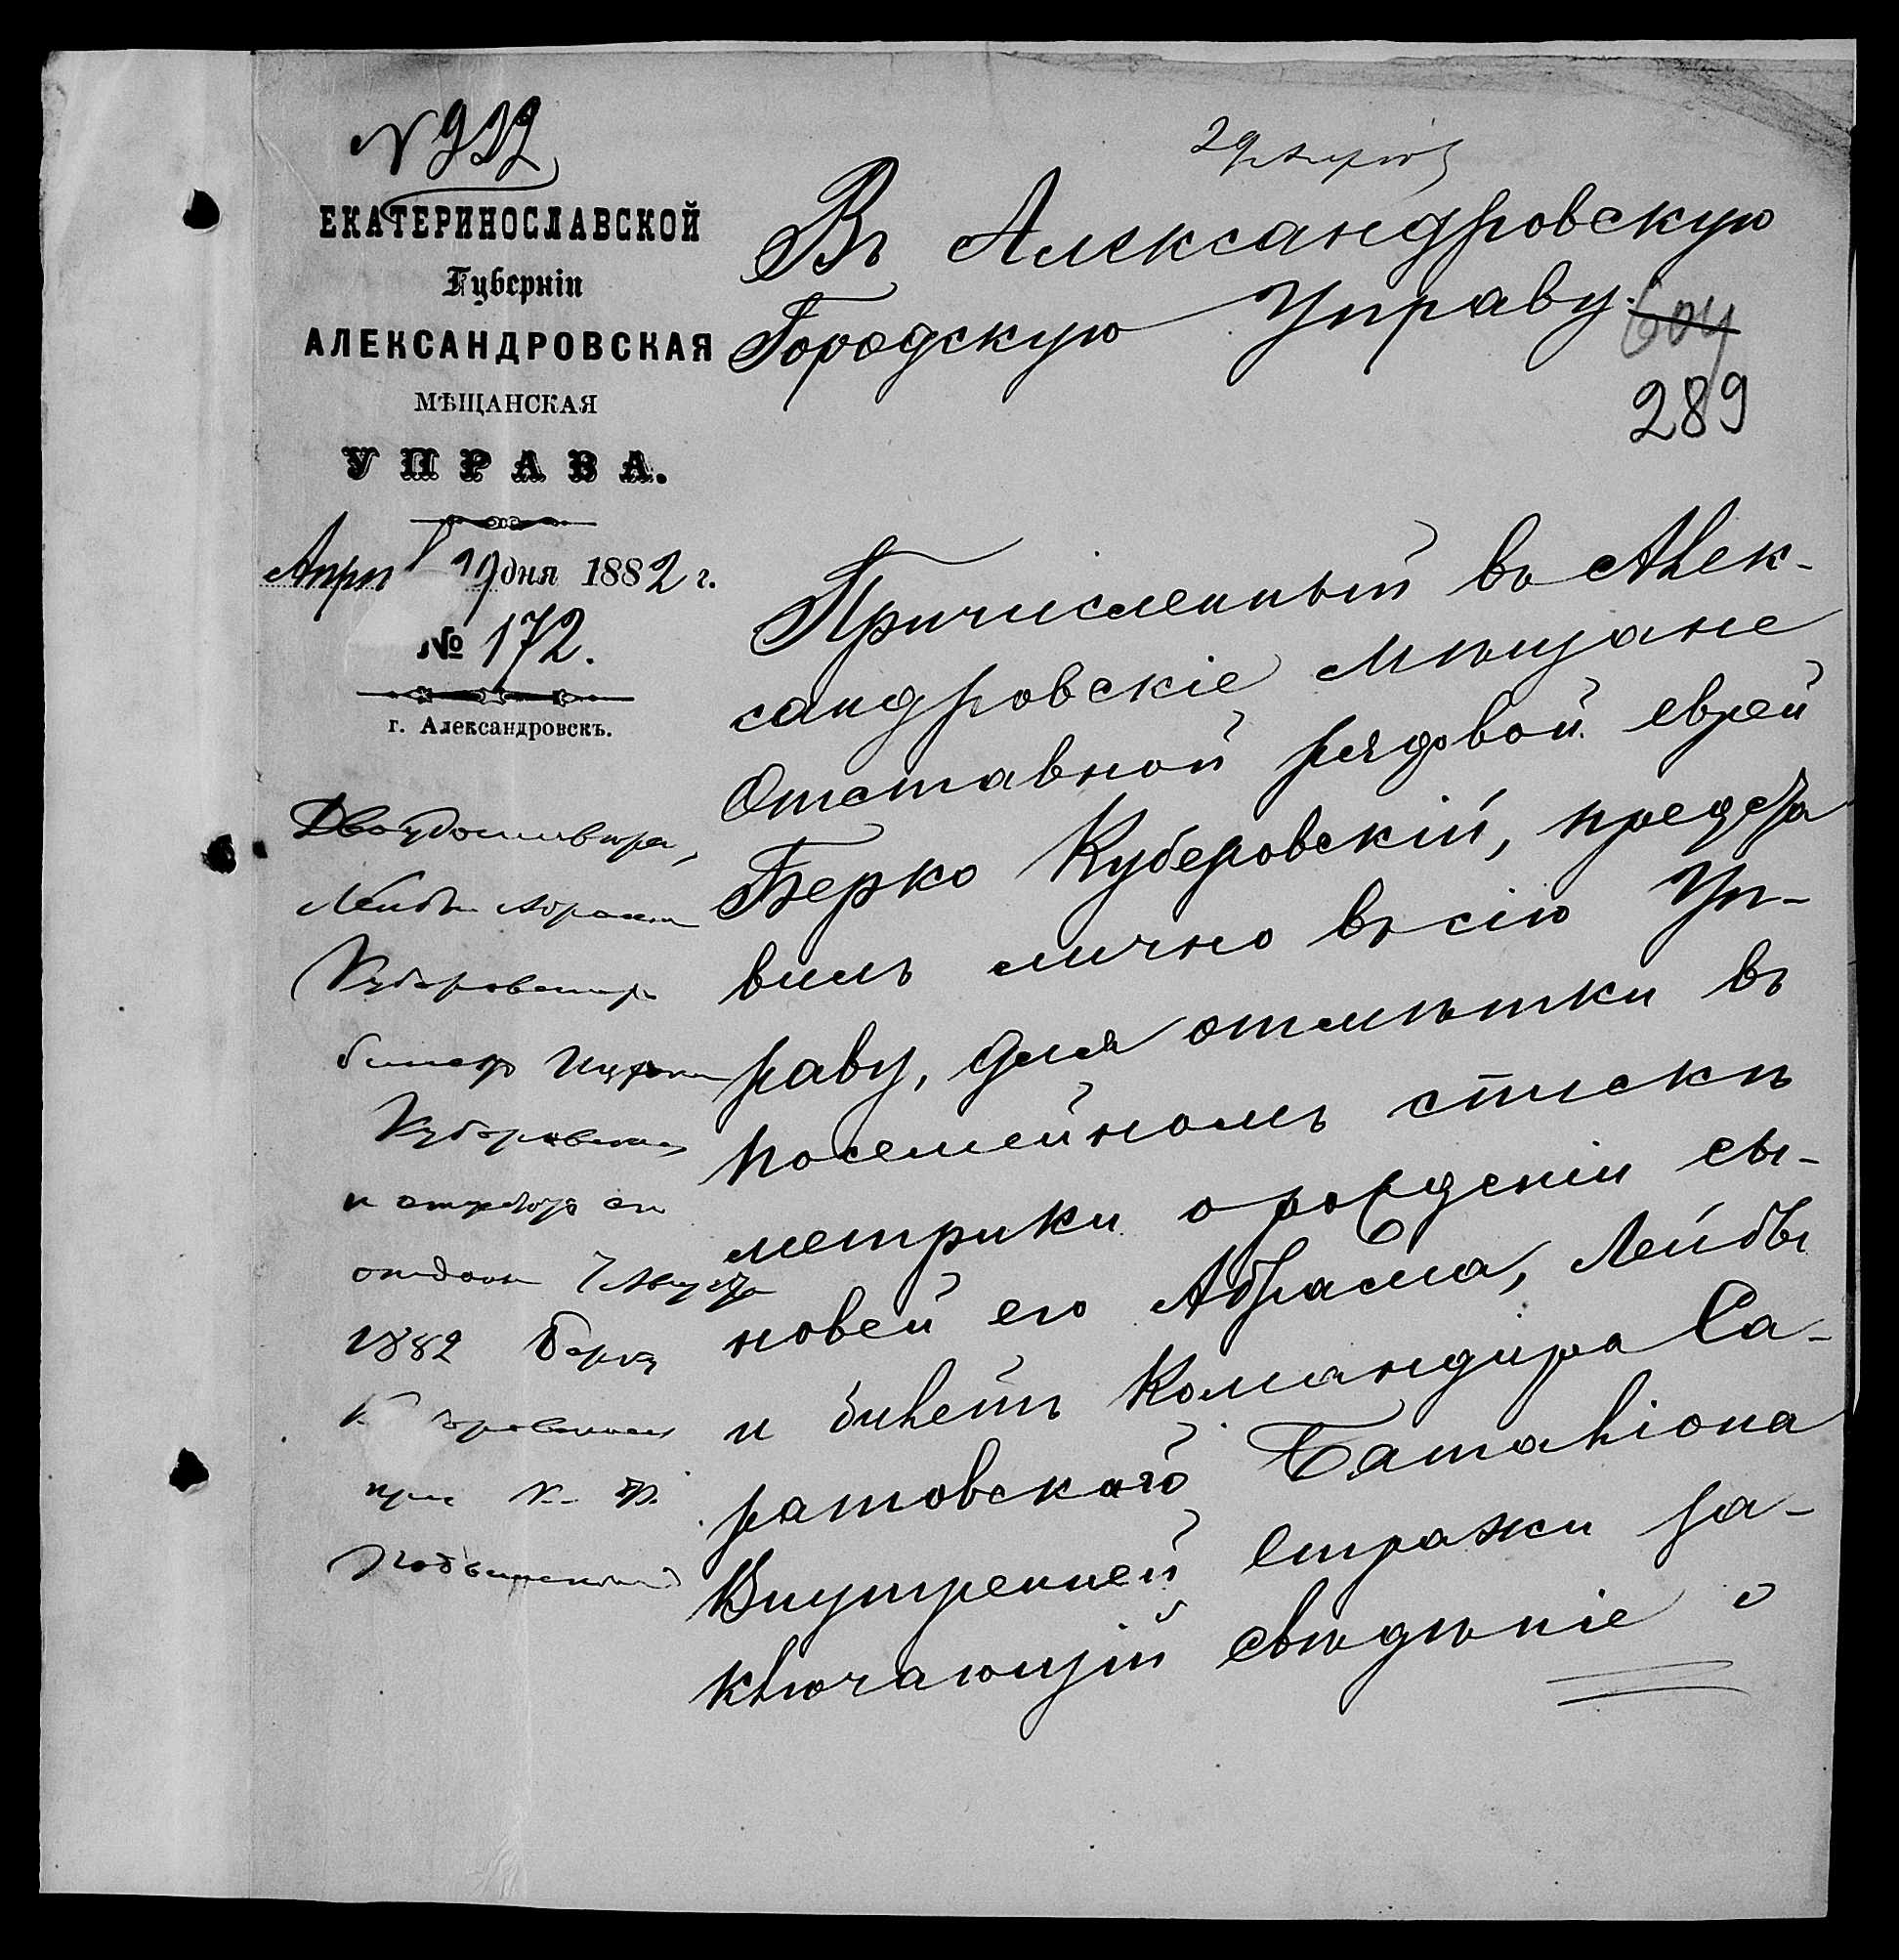 № 922
ЕКАТЕРИНОСЛАВСКОЙ
Губерніи
АЛЕКСАНДРОВСКАЯ
МѢЩАНСКАЯ
УПРАВА.
Апрѣл 29 дня 1882 г.
№ 172.
г. Александровскъ.
29 Апрѣля
Въ Александровскую
Городскую Управу.
604
289
Причисленный въ Алек-
сандровскіе мѣщане
Отставной рядовой еврей
Берко Куберовскій, предста
вилъ лично въ сію Уп-
раву, для отмѣтки въ
посемейномъ спискѣ
метрики о рожденіи сы-
новей его Абрама, Лейбы
и билетъ Командира Са-
ратовскаго Баталіона
Внутренней Стражи за-
ключающій свѣдѣніе о
Два
Лейбы Абрама
Куберовскаго
билетъ
Куберовскаго
и
7 Августа
1882 Берка